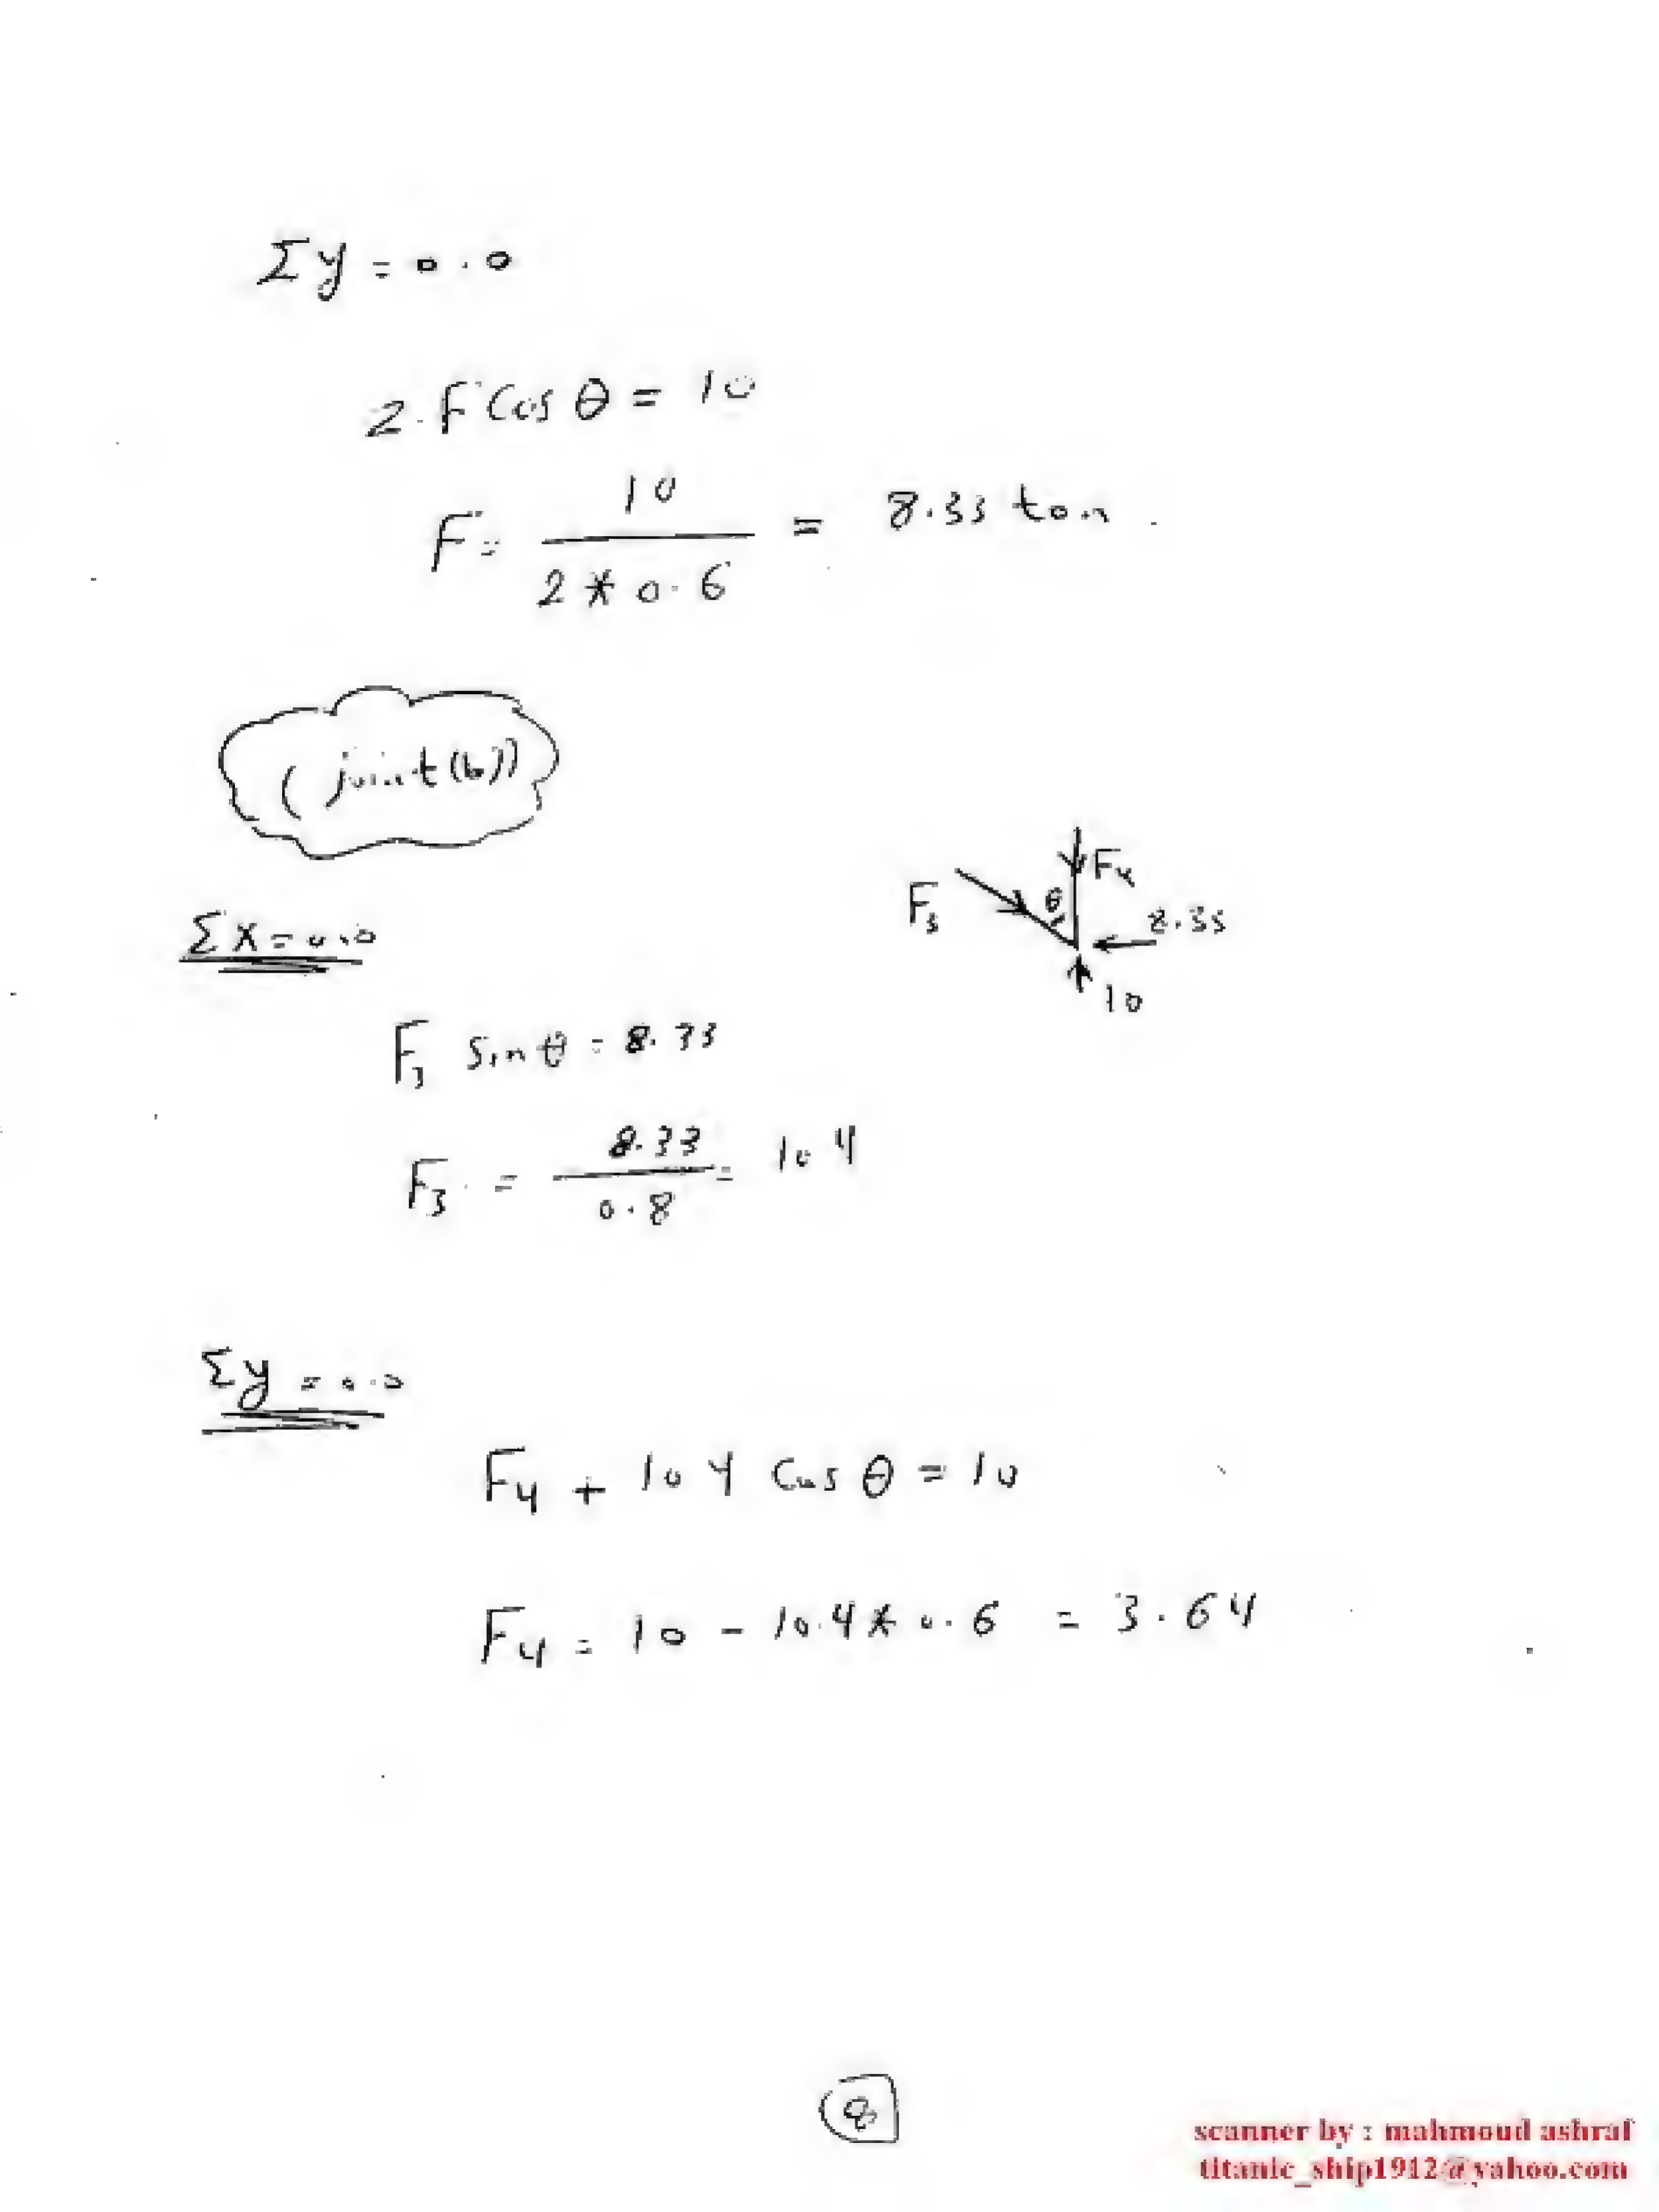 Σy = 0.0
2. F Cos θ = 10
F = 10 / 2 * 0.6 = 8.33 ton.
( joint (b))
F4
F3 θ 8.33
10
ΣX = 0.0
F3 Sin θ = 8.33
F3 = 8.33 / 0.8 = 10 4
Σy = 0.0
F4 + 10 4 Cos θ = 10
F4 = 10 - 10.4 * 0.6 = 3.64
8
scanner by : mahmoud ashraf
titanic_ship1912@yahoo.com